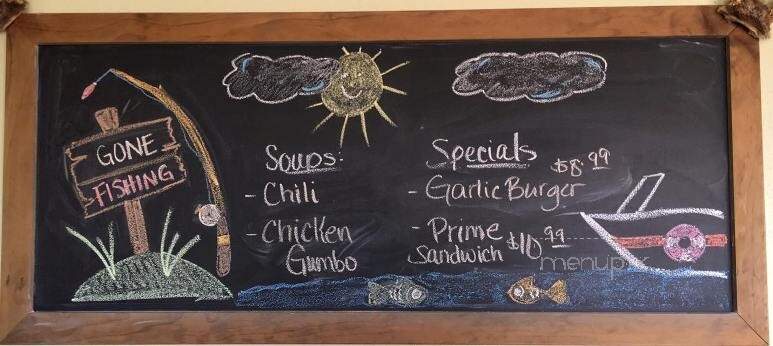 GONE
FISHING
Soups:
- Chili
- Chicken
Gumbo
Specials
$8.99
- Garlic Burger
- Prime
Sandwich $10.99
menupix